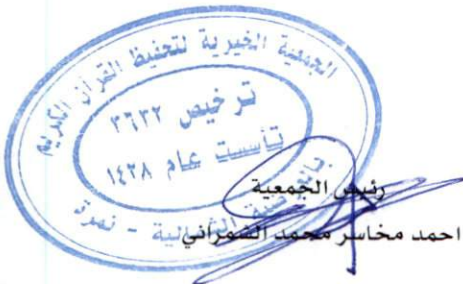 الجمعية الخيرية لتحفيظ القرآن الكريم
ترخيص ٣٦٣٢
تأسست عام ١٤٢٨
بالعرضية الشمالية - نمرة
رئيس الجمعية
احمد مخاسر محمد الشمراني